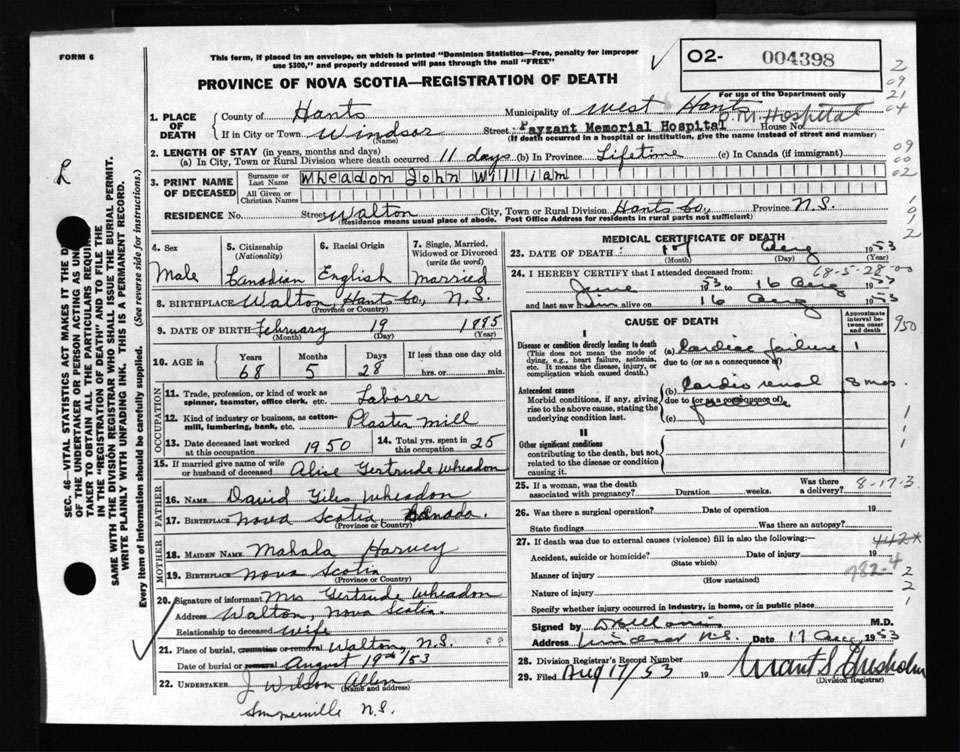 FORM 6
This form, if placed in an envelope, on which is printed "Dominion Statistics—Free, penalty for improper
use $300," and properly addressed will pass through the mail "FREE"
PROVINCE OF NOVA SCOTIA—REGISTRATION OF DEATH
02- 004398
For use of the Department only
2
09
21
04
1. PLACE OF DEATH
County of Hants Municipality of West Hants
P.M. Hospital
If in City or Town Windsor (Name) Street Payzant Memorial Hospital House No.
(If death occurred in a hospital or institution, give the name instead of street and number)
2. LENGTH OF STAY (in years, months and days)
(a) In City, Town or Rural Division where death occurred 11 days (b) In Province Lifetime (c) In Canada (if immigrant)
09
00
02
3. PRINT NAME OF DECEASED
Surname or Last Name Wheadon John Willliam
All Given or Christian Names
RESIDENCE No. Street Walton City, Town or Rural Division Hants Co., Province N.S.
(Residence means usual place of abode. Post Office Address for residents in rural parts not sufficient)
4. Sex Male
5. Citizenship (Nationality) Canadian
6. Racial Origin English
7. Single, Married, Widowed or Divorced (write the word) Married
8. BIRTHPLACE Walton, Hants Co., N.S.
(Province or Country)
9. DATE OF BIRTH February 19 1885
(Month) (Day) (Year)
10. AGE in Years 68 Months 5 Days 28 If less than one day old hrs. or min.
OCCUPATION
11. Trade, profession, or kind of work as spinner, teamster, office clerk, etc. Laborer
12. Kind of industry or business, as cotton-mill, lumbering, bank, etc. Plaster Mill
13. Date deceased last worked at this occupation 1950
14. Total yrs. spent in this occupation 25
15. If married give name of wife or husband of deceased Alice Gertrude Wheadon
FATHER
16. NAME David Giles Wheadon
17. BIRTHPLACE Nova Scotia, Canada.
(Province or Country)
MOTHER
18. MAIDEN NAME Mahala Harvey
19. BIRTHPLACE Nova Scotia
(Province or Country)
20. Signature of informant Mrs Gertrude Wheadon
Address Walton, Nova Scotia.
Relationship to deceased Wife
21. Place of burial, cremation or removal Walton, N.S.
Date of burial or removal August 19th/53
22. UNDERTAKER J Wilson Allen
(Name and address)
Summerville N.S.
MEDICAL CERTIFICATE OF DEATH
23. DATE OF DEATH: Aug 1953
(Month) (Day) (Year)
68-5-28-00
24. I HEREBY CERTIFY that I attended deceased from:
June 1953 to 16 Aug 1953
and last saw him alive on 16 Aug 1953
CAUSE OF DEATH
Approximate interval between onset and death
950
I
Disease or condition directly leading to death
(This does not mean the mode of dying, e.g., heart failure, asthenia, etc. It means the disease, injury, or complication which caused death.)
(a) Cardiac failure 1
due to (or as a consequence of)
Antecedent causes
Morbid conditions, if any, giving rise to the above cause, stating the underlying condition last.
(b) Cardio renal 8 mos.
due to (or as a consequence of)
(c)
II
Other significant conditions
contributing to the death, but not related to the disease or condition causing it.
25. If a woman, was the death associated with pregnancy? Duration weeks. Was there a delivery?
8-17-3
26. Was there a surgical operation? Date of operation 19
State findings Was there an autopsy?
27. If death was due to external causes (violence) fill in also the following:
442*
Accident, suicide or homicide? Date of injury 19
(State which)
782-4
Manner of injury
(How sustained)
Nature of injury
Specify whether injury occurred in industry, in home, or in public place
Signed by M.D.
Address Windsor N.S. Date 17 Aug 1953
28. Division Registrar's Record Number
29. Filed Aug 17/53 19
Chisholm
(Division Registrar)
SEC. 46—VITAL STATISTICS ACT MAKES IT THE
OF THE UNDERTAKER OR PERSON ACTING AS
TAKER TO OBTAIN ALL THE PARTICULARS
IN THE "REGISTRATION OF DEATH" AND TO FILE THE
SAME WITH THE DIVISION REGISTRAR WHO SHALL ISSUE THE BURIAL PERMIT.
WRITE PLAINLY WITH UNFADING INK. THIS IS A PERMANENT RECORD.
Every item of information should be carefully supplied. (See reverse side for instructions.)